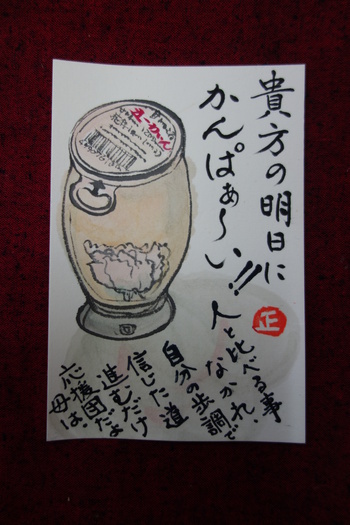 貴方の明日に
かんぱぁ～い!!
人と比べる事
なかれ、
自分の歩調で
信じた道
進むだけ
応援団だよ
母は、
正